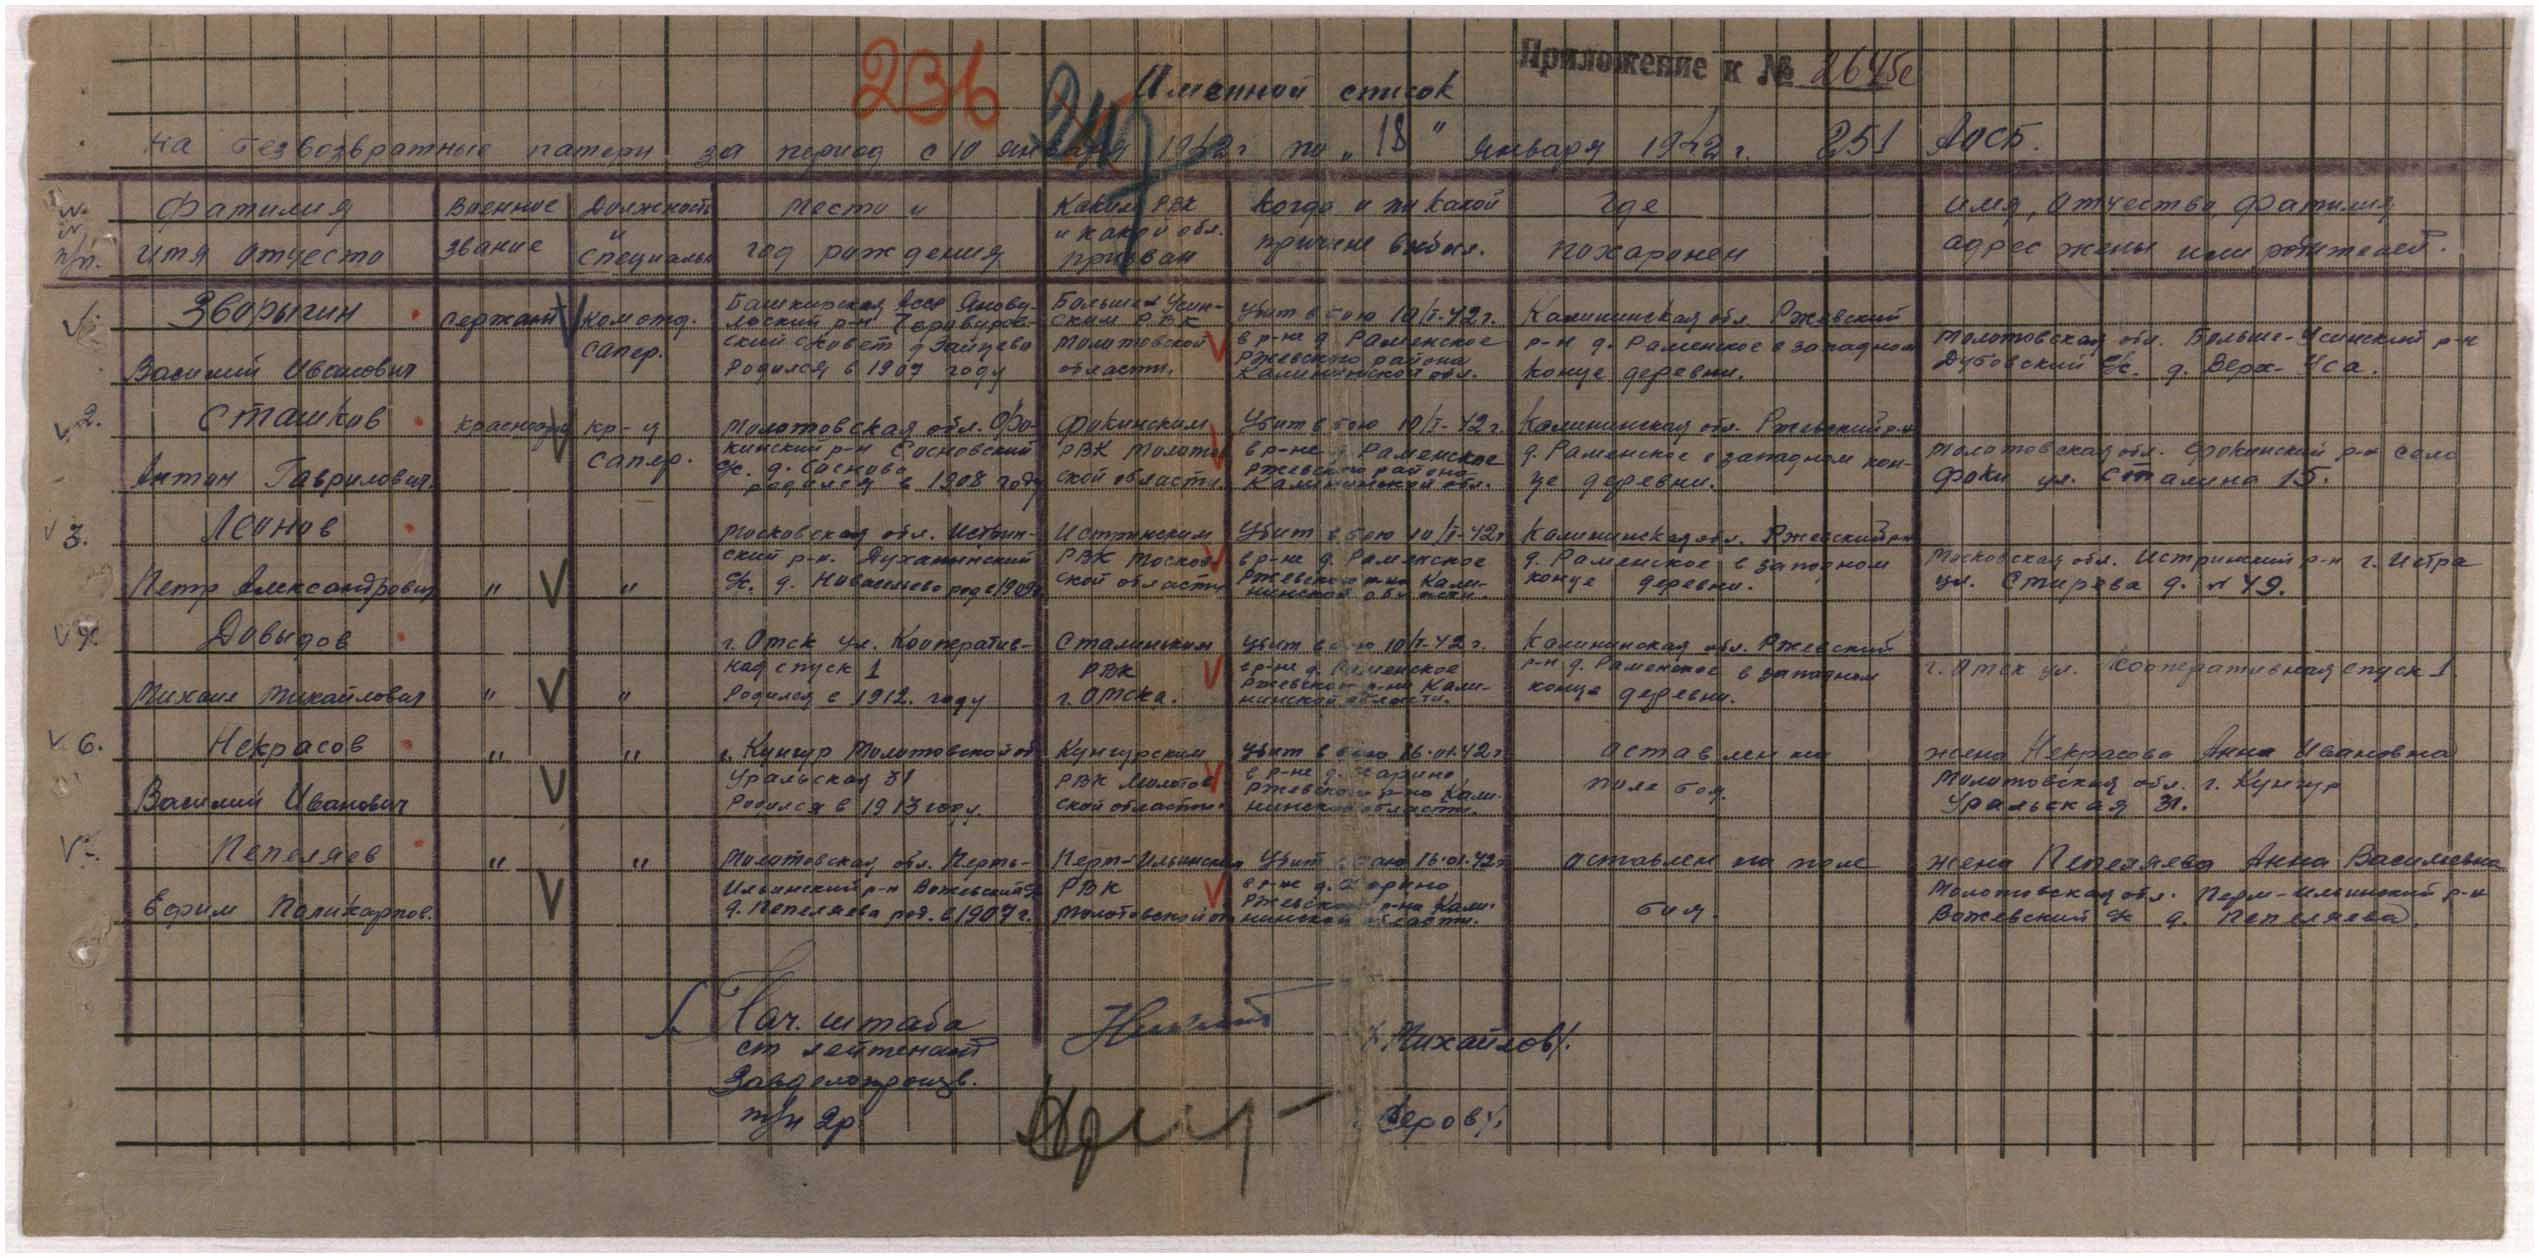 Приложение к № 2645с
236
Именной список
на безвозвратные патери за период с 10 января 1942 г. по "18" января 1942 г. 251 АОСБ.
№ № п/п.
Фамилия имя отчество
Военное звание
Должность и специальн
место и год рождения
Каким РВК и какой обл. призван
Когда и по какой причине выбыл.
Где похаронен
имя, отчество, фамилия, адрес жены или родителей.
Зворыгин
Василий Иванович
сержант
ком отд.
сапер.
Башкирская Асср
Родился в 1907 году
Больше Усин-
ским РВК
Молотовской
области.
Убит в бою 10/I-42 г.
в р-не д. Раменское
Ржевского района
Калининской обл.
Калининская обл. Ржевский
р-н д. Раменское в западном
конце деревни.
Молотовская обл. Больше-Усинский р-н
Дубовский с/с. д. Верх-Уса.
2. Сташков
Антон Гаврилович.
кр-ц
сапер.
Молотовская обл. Фо-
кинский р-н Сосновский
с/с. д. Соснова
родился в 1908 году
Фокинским
РВК Молотов
ской области.
Убит в бою 10/I-42 г.
в р-не д. Раменское
Ржевского района
Калининской обл.
Калининская обл. Ржевский р-н
д. Раменское в западном кон-
це деревни.
Молотовская обл. Фокинский р-н село
Фоки ул. Сталина 15.
3. Леонов
Петр Александрович
" "
Московская обл. Истрин-
ский р-н. Духанинский
с/с. д.
Истринским
РВК Москов
ской области
Убит в бою 10/I-42 г
в р-не д. Раменское
Ржевского р-на Кали-
нинской области.
Калининская обл. Ржевский р-н
д. Раменское в западном
конце деревни.
Московская обл. Истринский р-н г. Истра
ул. д. № 49.
4. Давыдов
Михаил Михайлович
" "
г. Омск ул. Кооператив-
ная спуск 1
Родился в 1912. году
Сталинским
РВК
г. Омска.
Убит в бою 10/I-42 г.
в р-не д. Раменское
Ржевского р-на Кали-
нинской области.
Калининская обл. Ржевский
р-н д. Раменское в западном
конце деревни.
г. Омск ул. Кооперативная спуск 1.
6. Некрасов
Василий Иванович
" "
г. Кунгур Молотовской об
Уральская 31
Родился в 1913 году.
Кунгурским
РВК Молотов
ской области.
Убит в бою 16.01.42 г.
в р-не д.
Ржевского р-на Кали-
нинской области.
аставлен на
поле боя.
жена Некрасова Анна Ивановна
Молотовская обл. г. Кунгур
Уральская 31.
Пепеляев
Ефим Паликарпов.
" "
Молотовская обл. Пермь-
Ильинский р-н Вожевский с/с
д. Пепеляева род. в 1907 г.
Перм-Ильинским
РВК
Молотовской об
Убит в бою 16.01.42 г
в р-не д.
Ржевского р-на Кали-
нинской области.
аставлен на поле
боя.
жена Пепеляева Анна Васильевна
Молотовская обл. Перм-Ильинский р-н
Вожевский с/с д. Пепеляева.
Нач. штаба
ст лейтенант
/Михайлов/.
Завделопроизв.
т/и 2р
Серов/.